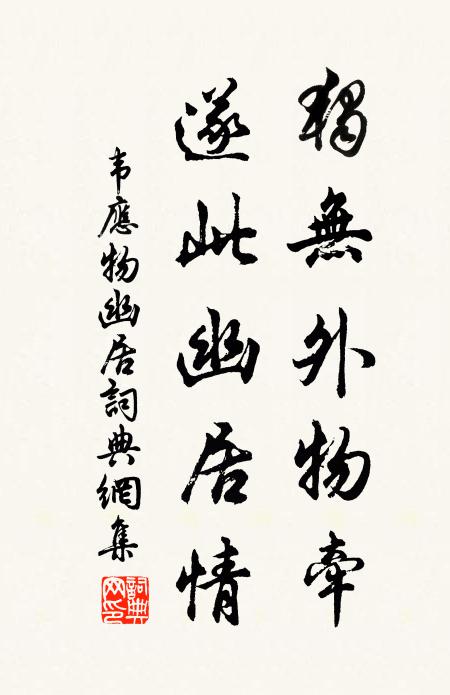 獨無外物牽
遂此幽居情
韦應物幽居詞典網集
詞典网印